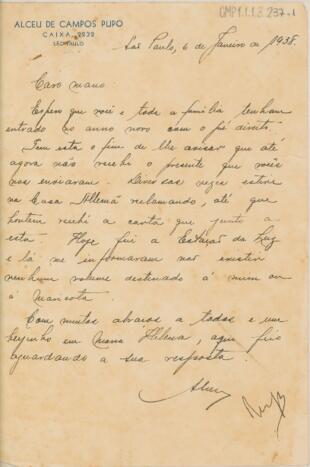 CMP1.1.1.3.237-1
ALCEU DE CAMPOS PUPO
CAIXA 2232
SÃO PAULO
São Paulo, 6 de Janeiro de 1938.
Caro mano:
Espero que você e toda a familia tenham
entrado no anno novo com o pé direito.
Tem esta o fim de lhe avisar que até
agora não recebi o presente que vocês
nos enviaram. Diversas vezes estive
na Casa Allemã reclamando, até que
hontem recebi a carta que junto a
esta. Hoje fui a Estação da Luz
e lá me informaram não existir
nenhum volume destinado á mim ou
á Maricota.
Com muitos abraços a todos e um
beijinho em Maria Helena, aqui fico
aguardando a sua resposta.
Alceu